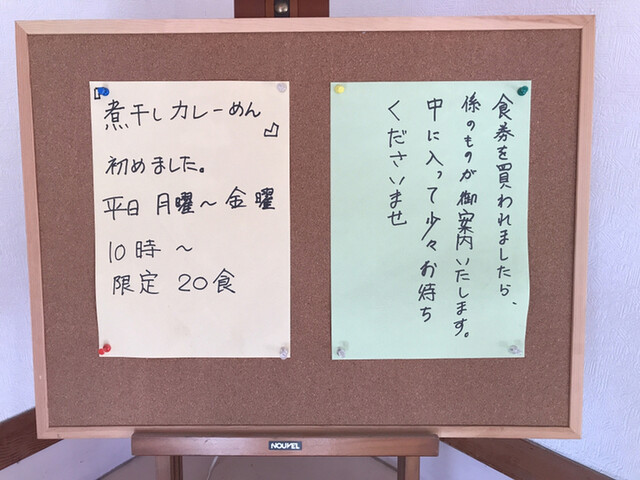 『煮干しカレーめん』
初めました。
平日 月曜〜金曜
10時〜
限定 20食
食券を買われましたら、
係のものが御案内いたします。
中に入って少々お待ち
くださいませ
NOUVEL